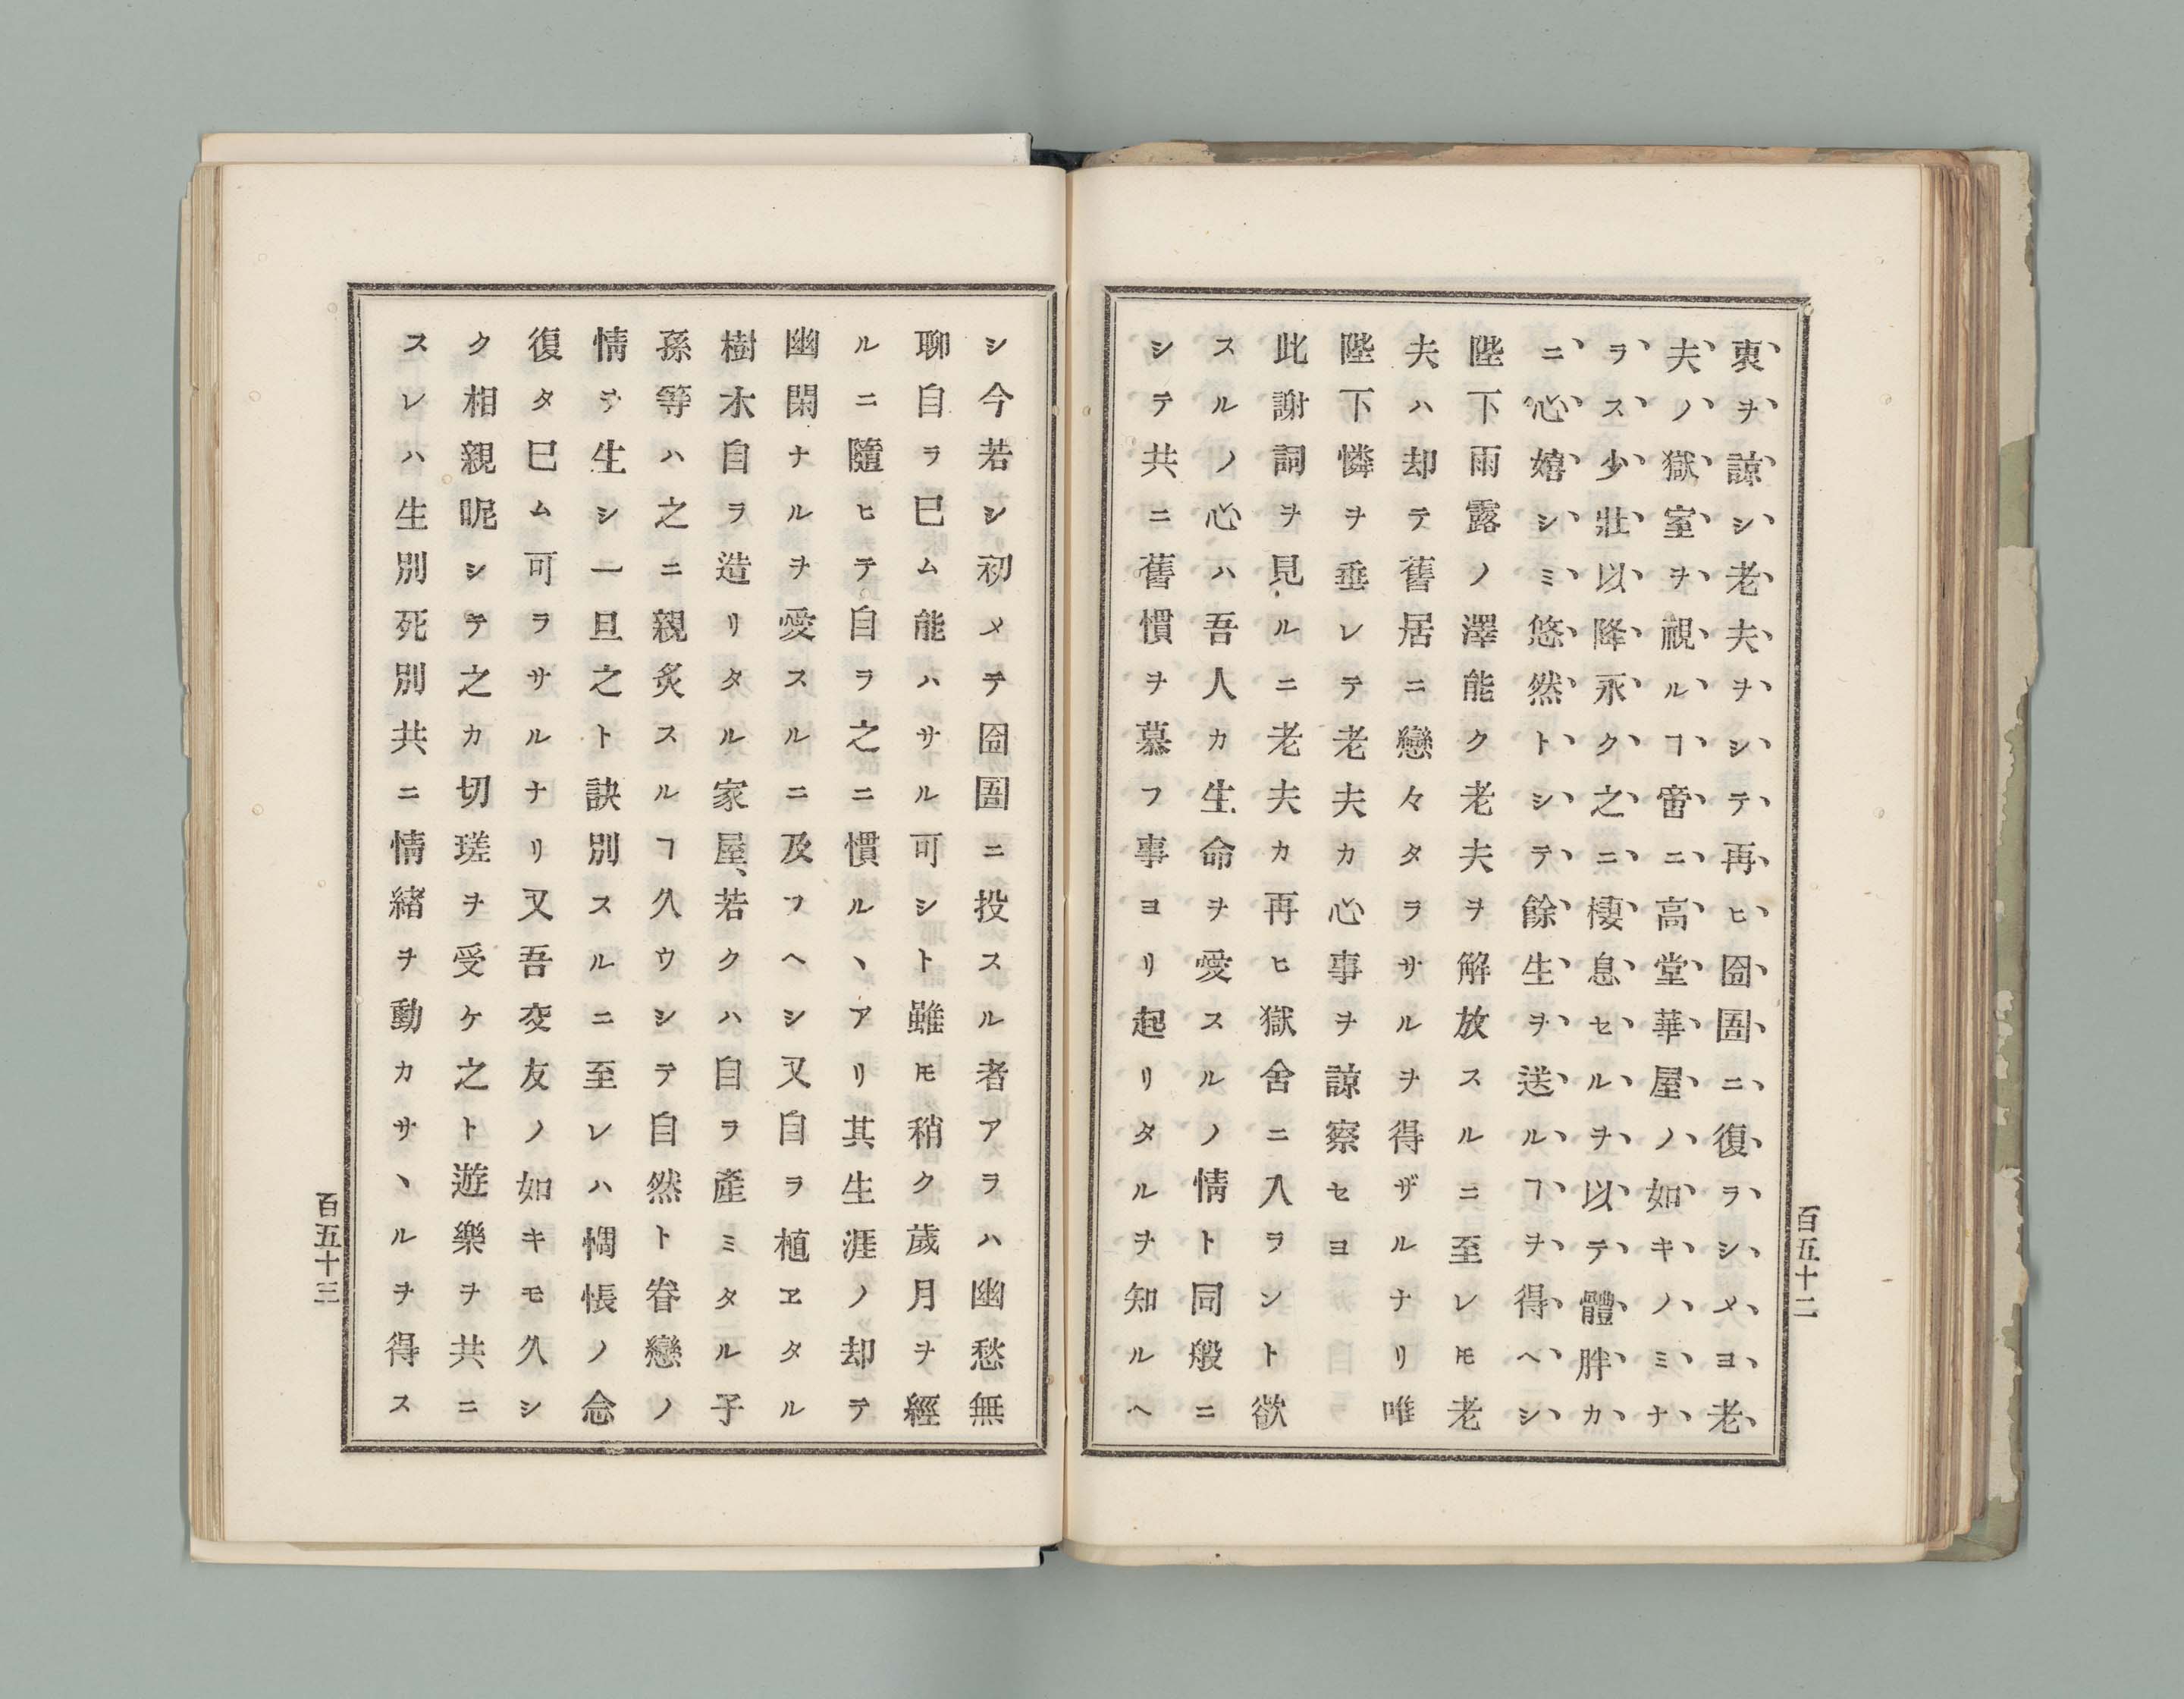 衷ヲ諒シ老夫ヲシテ再ヒ囹圄ニ復ラシメヨ老
夫ノ獄室ヲ視ルヿ啻ニ高堂華屋ノ如キノミナ
ラス少壯以降永ク之ニ棲息セルヲ以テ體胖カ
ニ心嬉シミ悠然トシテ餘生ヲ送ルヿヲ得ヘシ
陛下雨露ノ澤能ク老夫ヲ解放スルニ至レ𪜈老
夫ハ却テ舊居ニ戀々タラサルヲ得ザルナリ唯
陛下憐ヲ垂レテ老夫カ心事ヲ諒察セヨ
此謝詞ヲ見ルニ老夫カ再ヒ獄舍ニ入ラント欲
スルノ心ハ吾人カ生命ヲ愛スルノ情ト同般ニ
シテ共ニ舊慣ヲ慕フ事ヨリ起リタルヲ知ルヘ
百五十二
シ今若シ初メテ囹圄ニ投スル者アラハ幽愁無
聊自ラ已ム能ハサル可シト雖𪜈稍ク歲月ヲ經
ルニ隨ヒテ自ラ之ニ慣ルヽアリ其生涯ノ却テ
幽閑ナルヲ愛スルニ及フヘシ又自ラ植ヱタル
樹木自ラ造リタル家屋、若クハ自ラ產ミタル子
孫等ハ之ニ親炙スルヿ久ウシテ自然ト眷戀ノ
情ヲ生シ一旦之ト訣別スルニ至レハ惆悵ノ念
復タ已ム可ラサルナリ又吾交友ノ如キモ久シ
ク相親昵シテ之カ切瑳ヲ受ケ之ト遊樂ヲ共ニ
スレハ生別死別共ニ情緒ヲ動カサヽルヲ得ス
百五十三